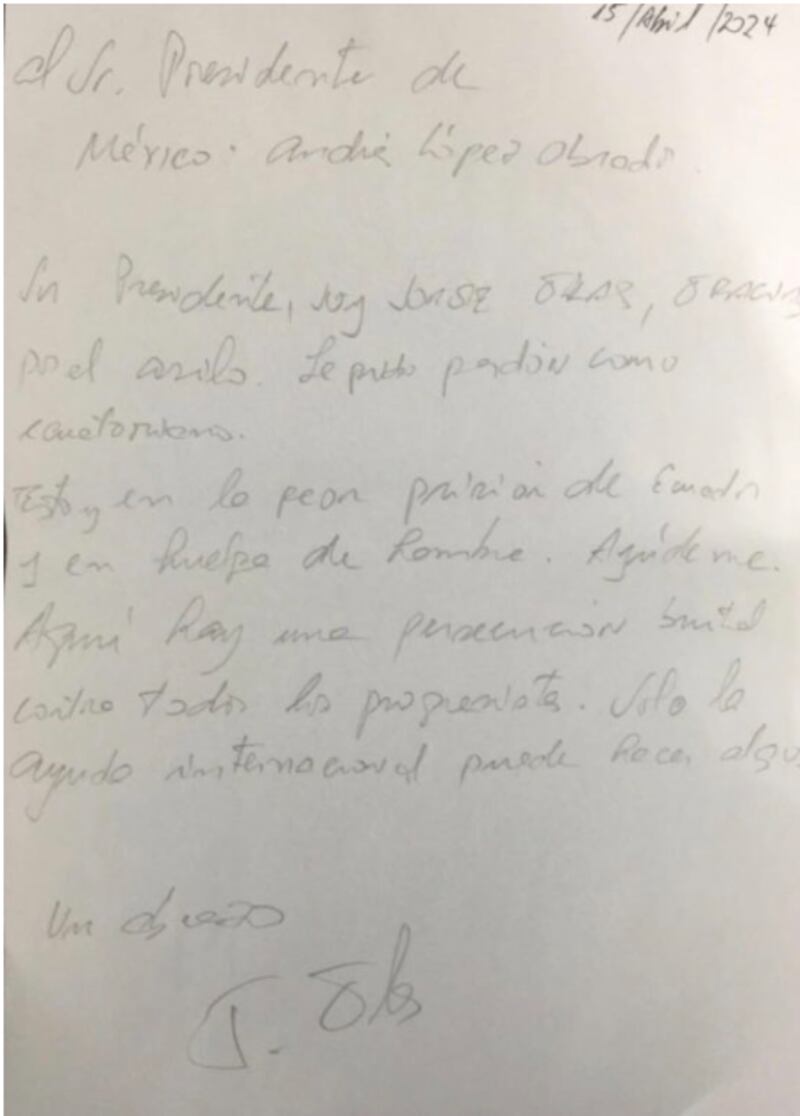 15/Abril/2024
al Sr. Presidente de
México: Andrés López Obrador.
Sr. Presidente, soy JORGE GLAS, GRACIAS
por el asilo. Le pido perdón como
ecuatoriano.
Estoy en la peor prisión de Ecuador
y en huelga de hambre. Ayúdeme.
Aquí hay una persecución brutal
contra todos los progresistas. Sólo la
ayuda internacional puede hacer algo.
Un abrazo
J. Glas